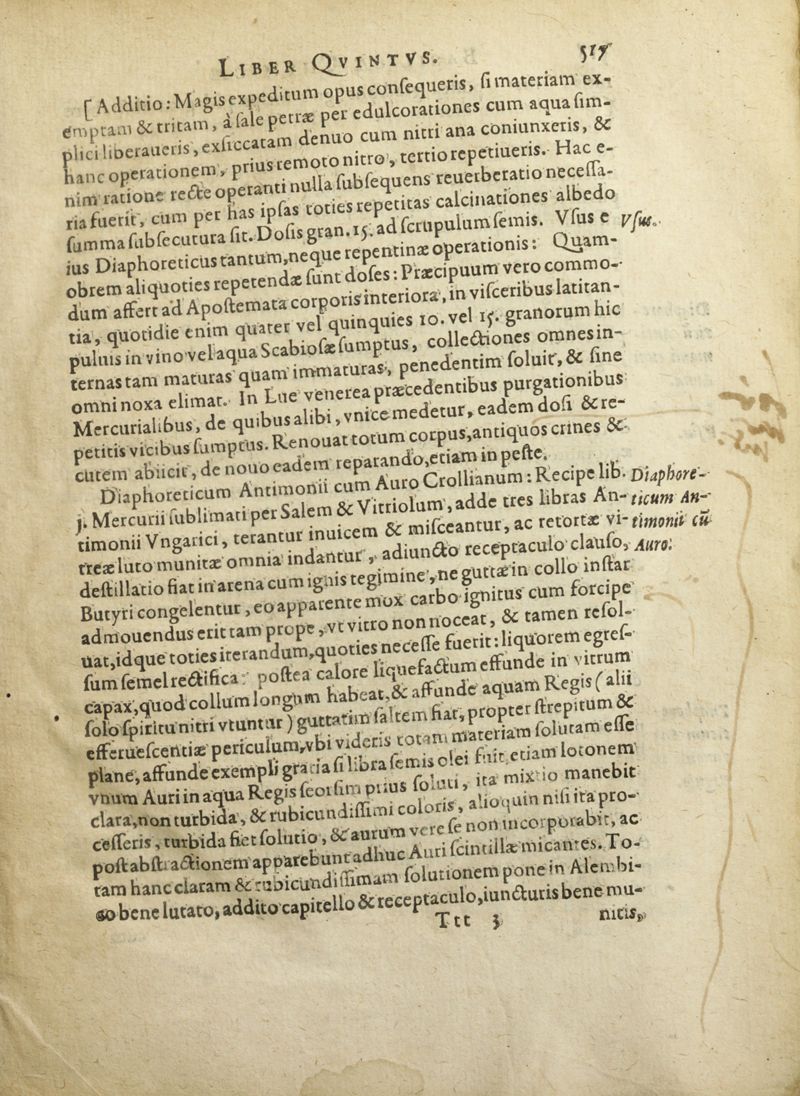 LIBER QVINTVS. 517
[Additio: Magis expeditum opus consequeris, si materiam ex-
emptam & tritam, à sale petræ per edulcorationes cum aqua sim-
plici liberaueris, exsiccatam denuo cum nitri ana coniunxeris, &
hanc operationem, prius remoto nitro, tertio repetiueris. Hac e-
nim ratione recte operanti nulla subsequens reuerberatio necessa-
ria fuerit, cum per has ipsas toties repetitas calcinationes albedo
summa subsecutura sit. Dosis gran. 15. ad scrupulum semis. Vsus e Vsus.
ius Diaphoreticus tantum, neque repentinæ operationis: Quam-
obrem aliquoties repetendæ sunt doses: Præcipuum vero commo-
dum affert ad Apostemata corporis interiora, in visceribus latitan-
tia, quotidie enim quater vel quinquies 10. vel 15. granorum hic
puluis in vino vel aqua Scabiosæ sumptus, collectiones omnes in-
ternas tam maturas quam immaturas, penedentim soluit, & sine
omni noxa elimat. In Lue venerea præcedentibus purgationibus
Mercurialibus, de quibus alibi, vnice medetur, eadem dosi & re-
petitis vicibus sumptus. Renouat totum corpus, antiquos crines &
cutem abiicit, de nouo eadem reparando, etiam in peste.
Diaphoreticum Antimonii cum Auro Crollianum: Recipe lib. Diaphore-
j. Mercurii sublimati per Salem & Vitriolum, adde tres libras An- ticum An-
timonii Vngarici, terantur inuicem & misceantur, ac retortæ vi- timonii cū
treæ luto munitæ omnia indantur, adiuncto receptaculo clauso, Auro.
destillatio fiat in arena cum ignis tegimine, ne guttæ in collo instar
Butyri congelentur, eo apparente mox carbo ignitus cum forcipe
admouendus erit tam prope, vt vitro non noceat, & tamen resol-
uat, idque toties iterandum, quoties necesse fuerit: liquorem egres-
sum semel rectifica: postea calore liquefactum effunde in vitrum
capax, quod collum longum habeat, & affunde aquam Regis (alii
solo spiritu nitri vtuntur) guttatim saltem fiat, propter strepitum &
efferuescentiæ periculum, vbi videris totam materiam solutam esse
plane, affunde exempli gratia si libra semis olei fuit etiam lotonem
vnum Auri in aqua Regis seorsim prius soluti, ita mixtio manebit
clara, non turbida, & rubicundissimi coloris, alioquin nisi ita pro-
cesseris, turbida fiet solutio, & aurum vere se non incorporabit, ac
post abstractionem apparebunt adhuc Auri scintillæ micantes. To-
tam hanc claram & rubicundissimam solutionem pone in Alembi-
co bene lutato, addito capitello & receptaculo, iuncturis bene mu-
Ttt 3 nitis,